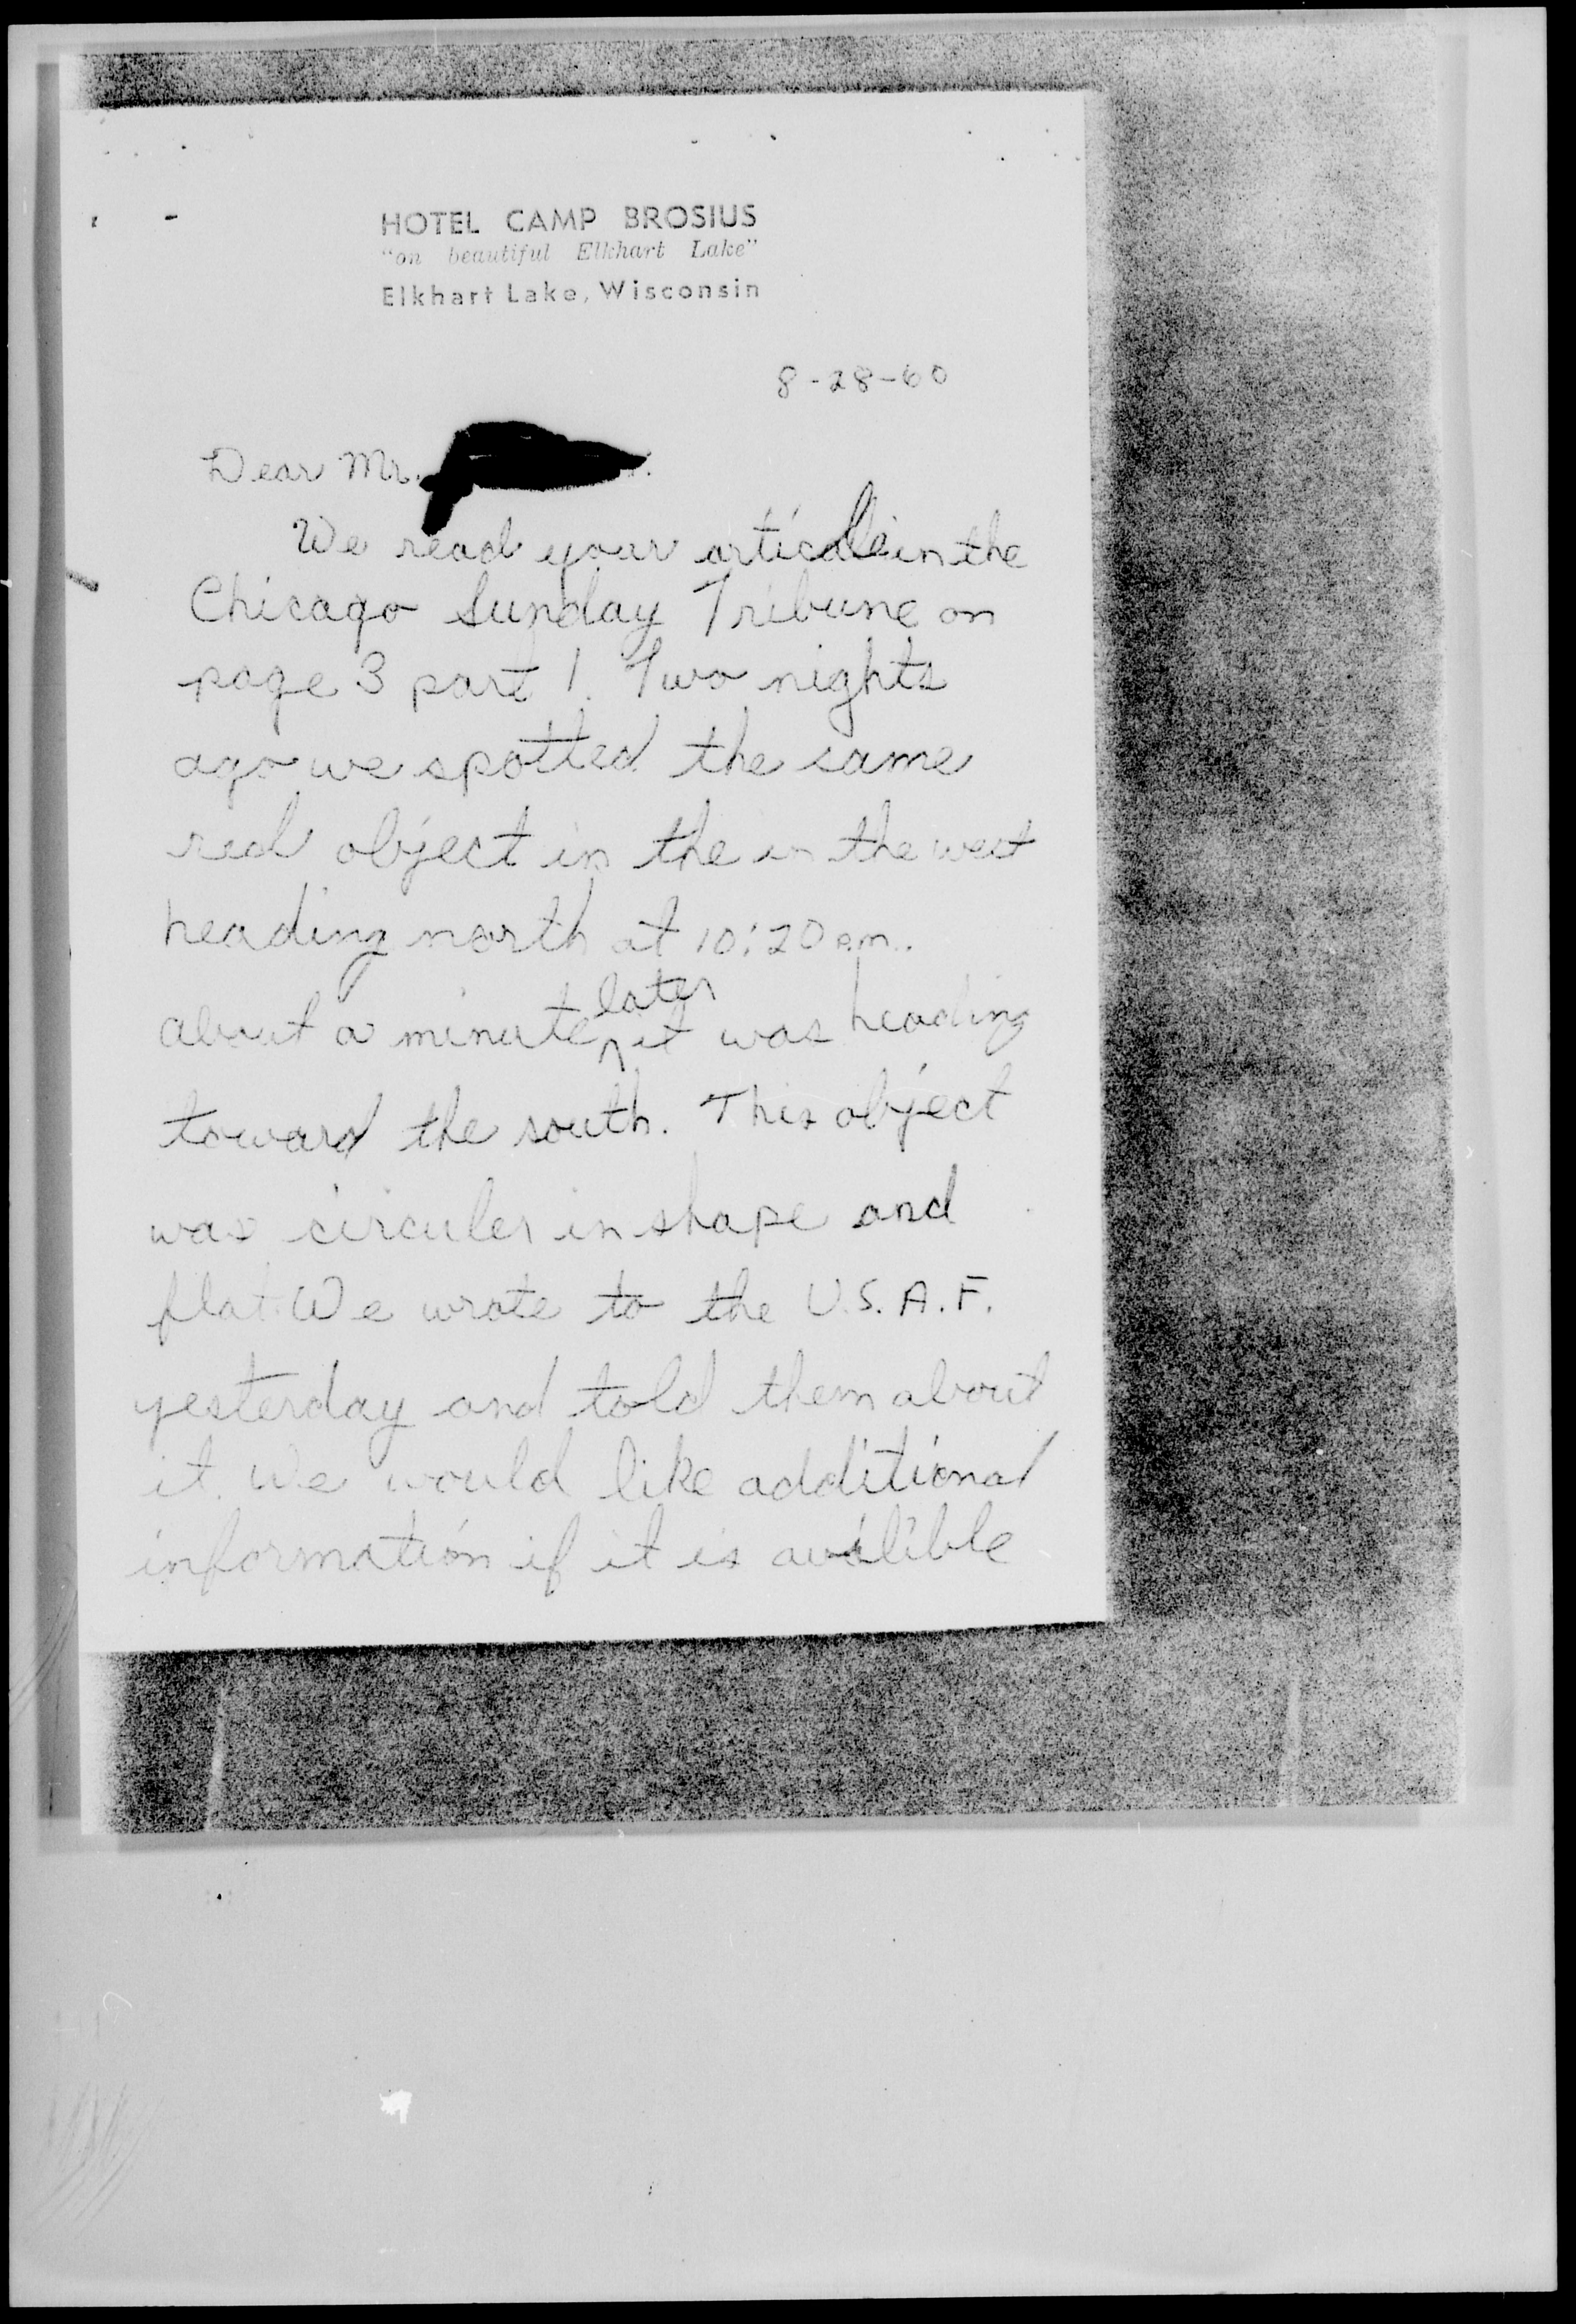 HOTEL CAMP BROSIUS
"on beautiful Elkhart Lake"
Elkhart Lake, Wisconsin
8-28-60
Dear Mr.
We read your article in the
Chicago Sunday Tribune on
page 3 part 1. Two nights
ago we spotted the same
red object in the in the west
heading north at 10:20 P.M..
about a minute later it was heading
toward the south. This object
was circuler in shape and
flat. We wrote to the U.S.A.F.
yesterday and told them about
it. We would like additional
information if it is availible